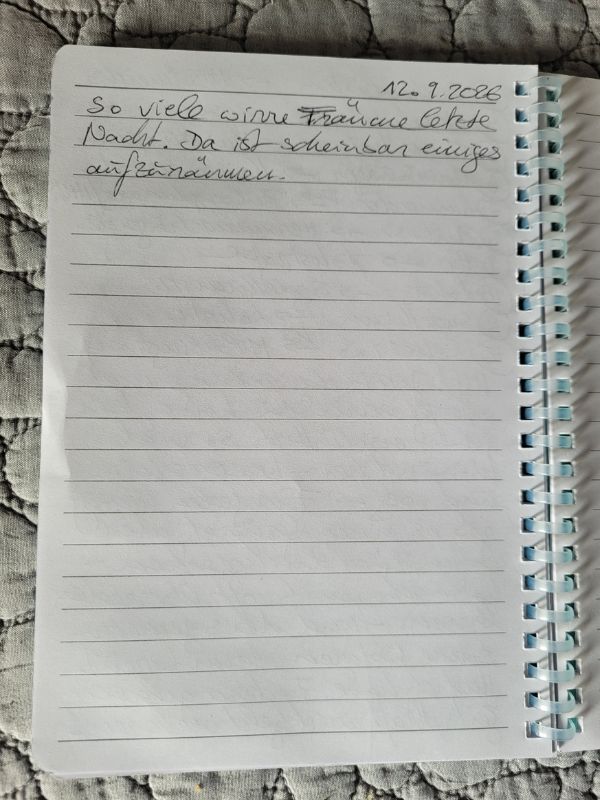 12.9.2026
So viele wirre Träume letzte
Nacht. Da ist scheinbar einiges
aufzuräumen.